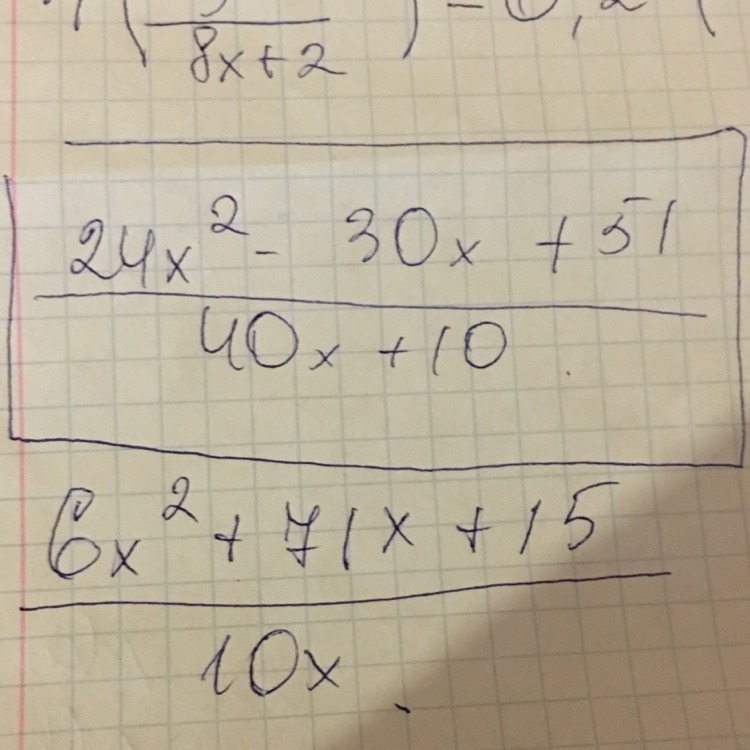 8x+2
24x² - 30x + 51
40x + 10
6x² + 71x + 15
10x